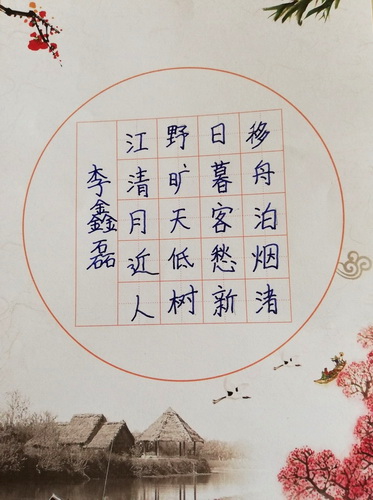 移舟泊烟渚
日暮客愁新
野旷天低树
江清月近人
李鑫磊